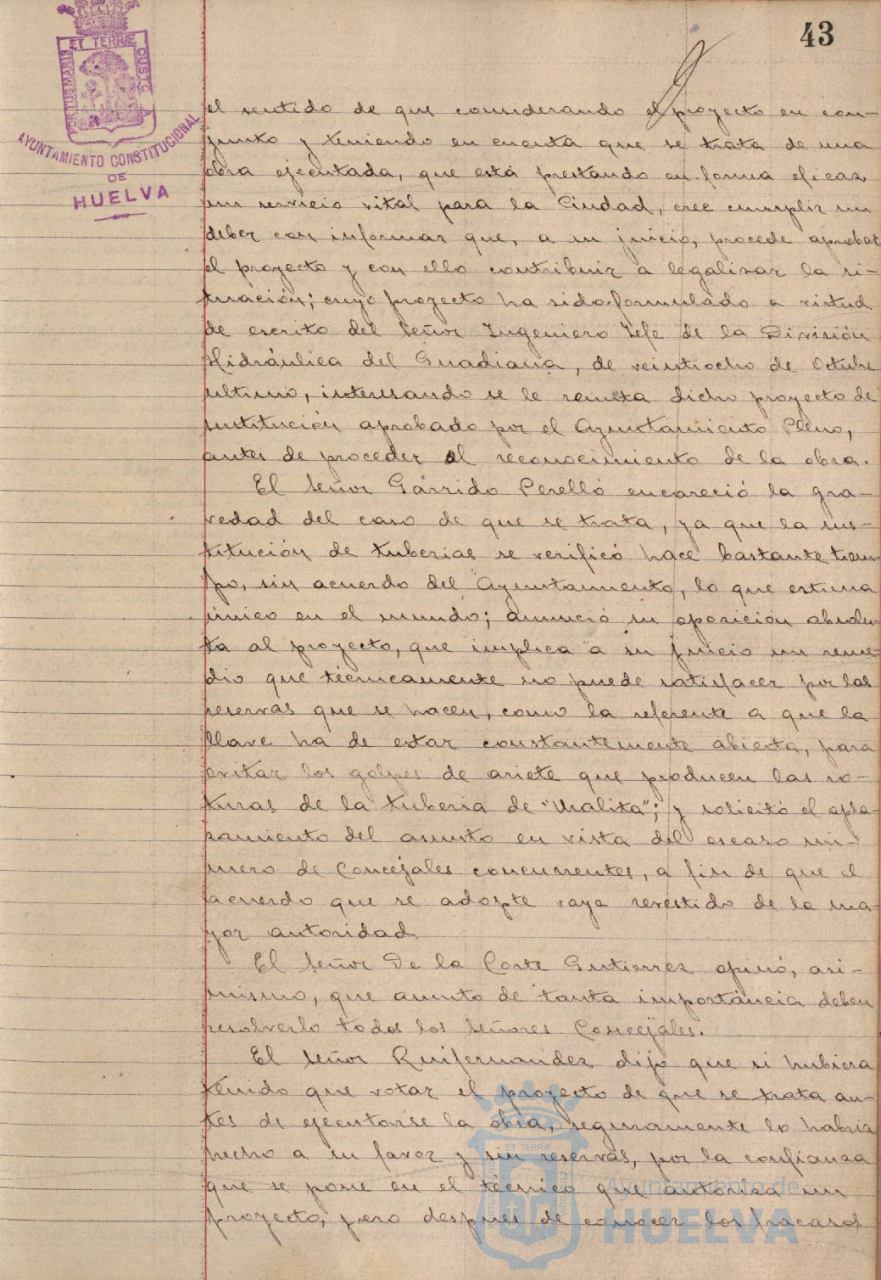 43
ET TERRÆ
PORTUS MARIS
CUSTODIA
AYUNTAMIENTO CONSTITUCIONAL
DE
HUELVA
el sentido de que considerando el proyecto en con-
junto y teniendo en cuenta que se trata de una
obra ejecutada, que está prestando en forma eficaz
un servicio vital para la Ciudad, cree cumplir un
deber con informar que, a su juicio, procede aprobar
el proyecto y con ello contribuir a legalizar la si-
tuación; cuyo proyecto ha sido formulado a virtud
de escrito del Señor Ingeniero Jefe de la División
Hidráulica del Guadiana, de veintiocho de Octubre
último, interesando se le remita dicho proyecto de
sustitución aprobado por el Ayuntamiento Pleno,
antes de proceder al reconocimiento de la obra.
El Señor Garrido Perelló encareció la gra-
vedad del caso de que se trata, ya que la sus-
titución de tuberias se verificó hace bastante tiem-
po, sin acuerdo del Ayuntamiento, lo que estima
único en el mundo; anunció su oposición absolu-
ta al proyecto, que implica a su juicio un reme-
dio que técnicamente no puede satisfacer por las
reservas que se hacen, como la referente a que la
llave ha de estar constantemente abierta, para
evitar los golpes de ariete que producen las ro-
turas de la tuberia de "Uralita"; y solicitó el apla-
zamiento del asunto en vista del escaso nú-
mero de Concejales concurrentes, a fin de que el
acuerdo que se adopte vaya revestido de la ma-
yor autoridad.
El Señor De la Corte Gutierrez opinó, asi-
mismo, que asunto de tanta importancia deben
resolverlo todos los Señores Concejales.
El Señor Ruifernandez dijo que si hubiera
tenido que votar el proyecto de que se trata an-
tes de ejecutarse la obra, seguramente lo habria
hecho a su favor y sin reservas, por la confianza
que se pone en el técnico que autoriza un
proyecto, pero después de conocer los fracasos
Ayuntamiento de
HUELVA